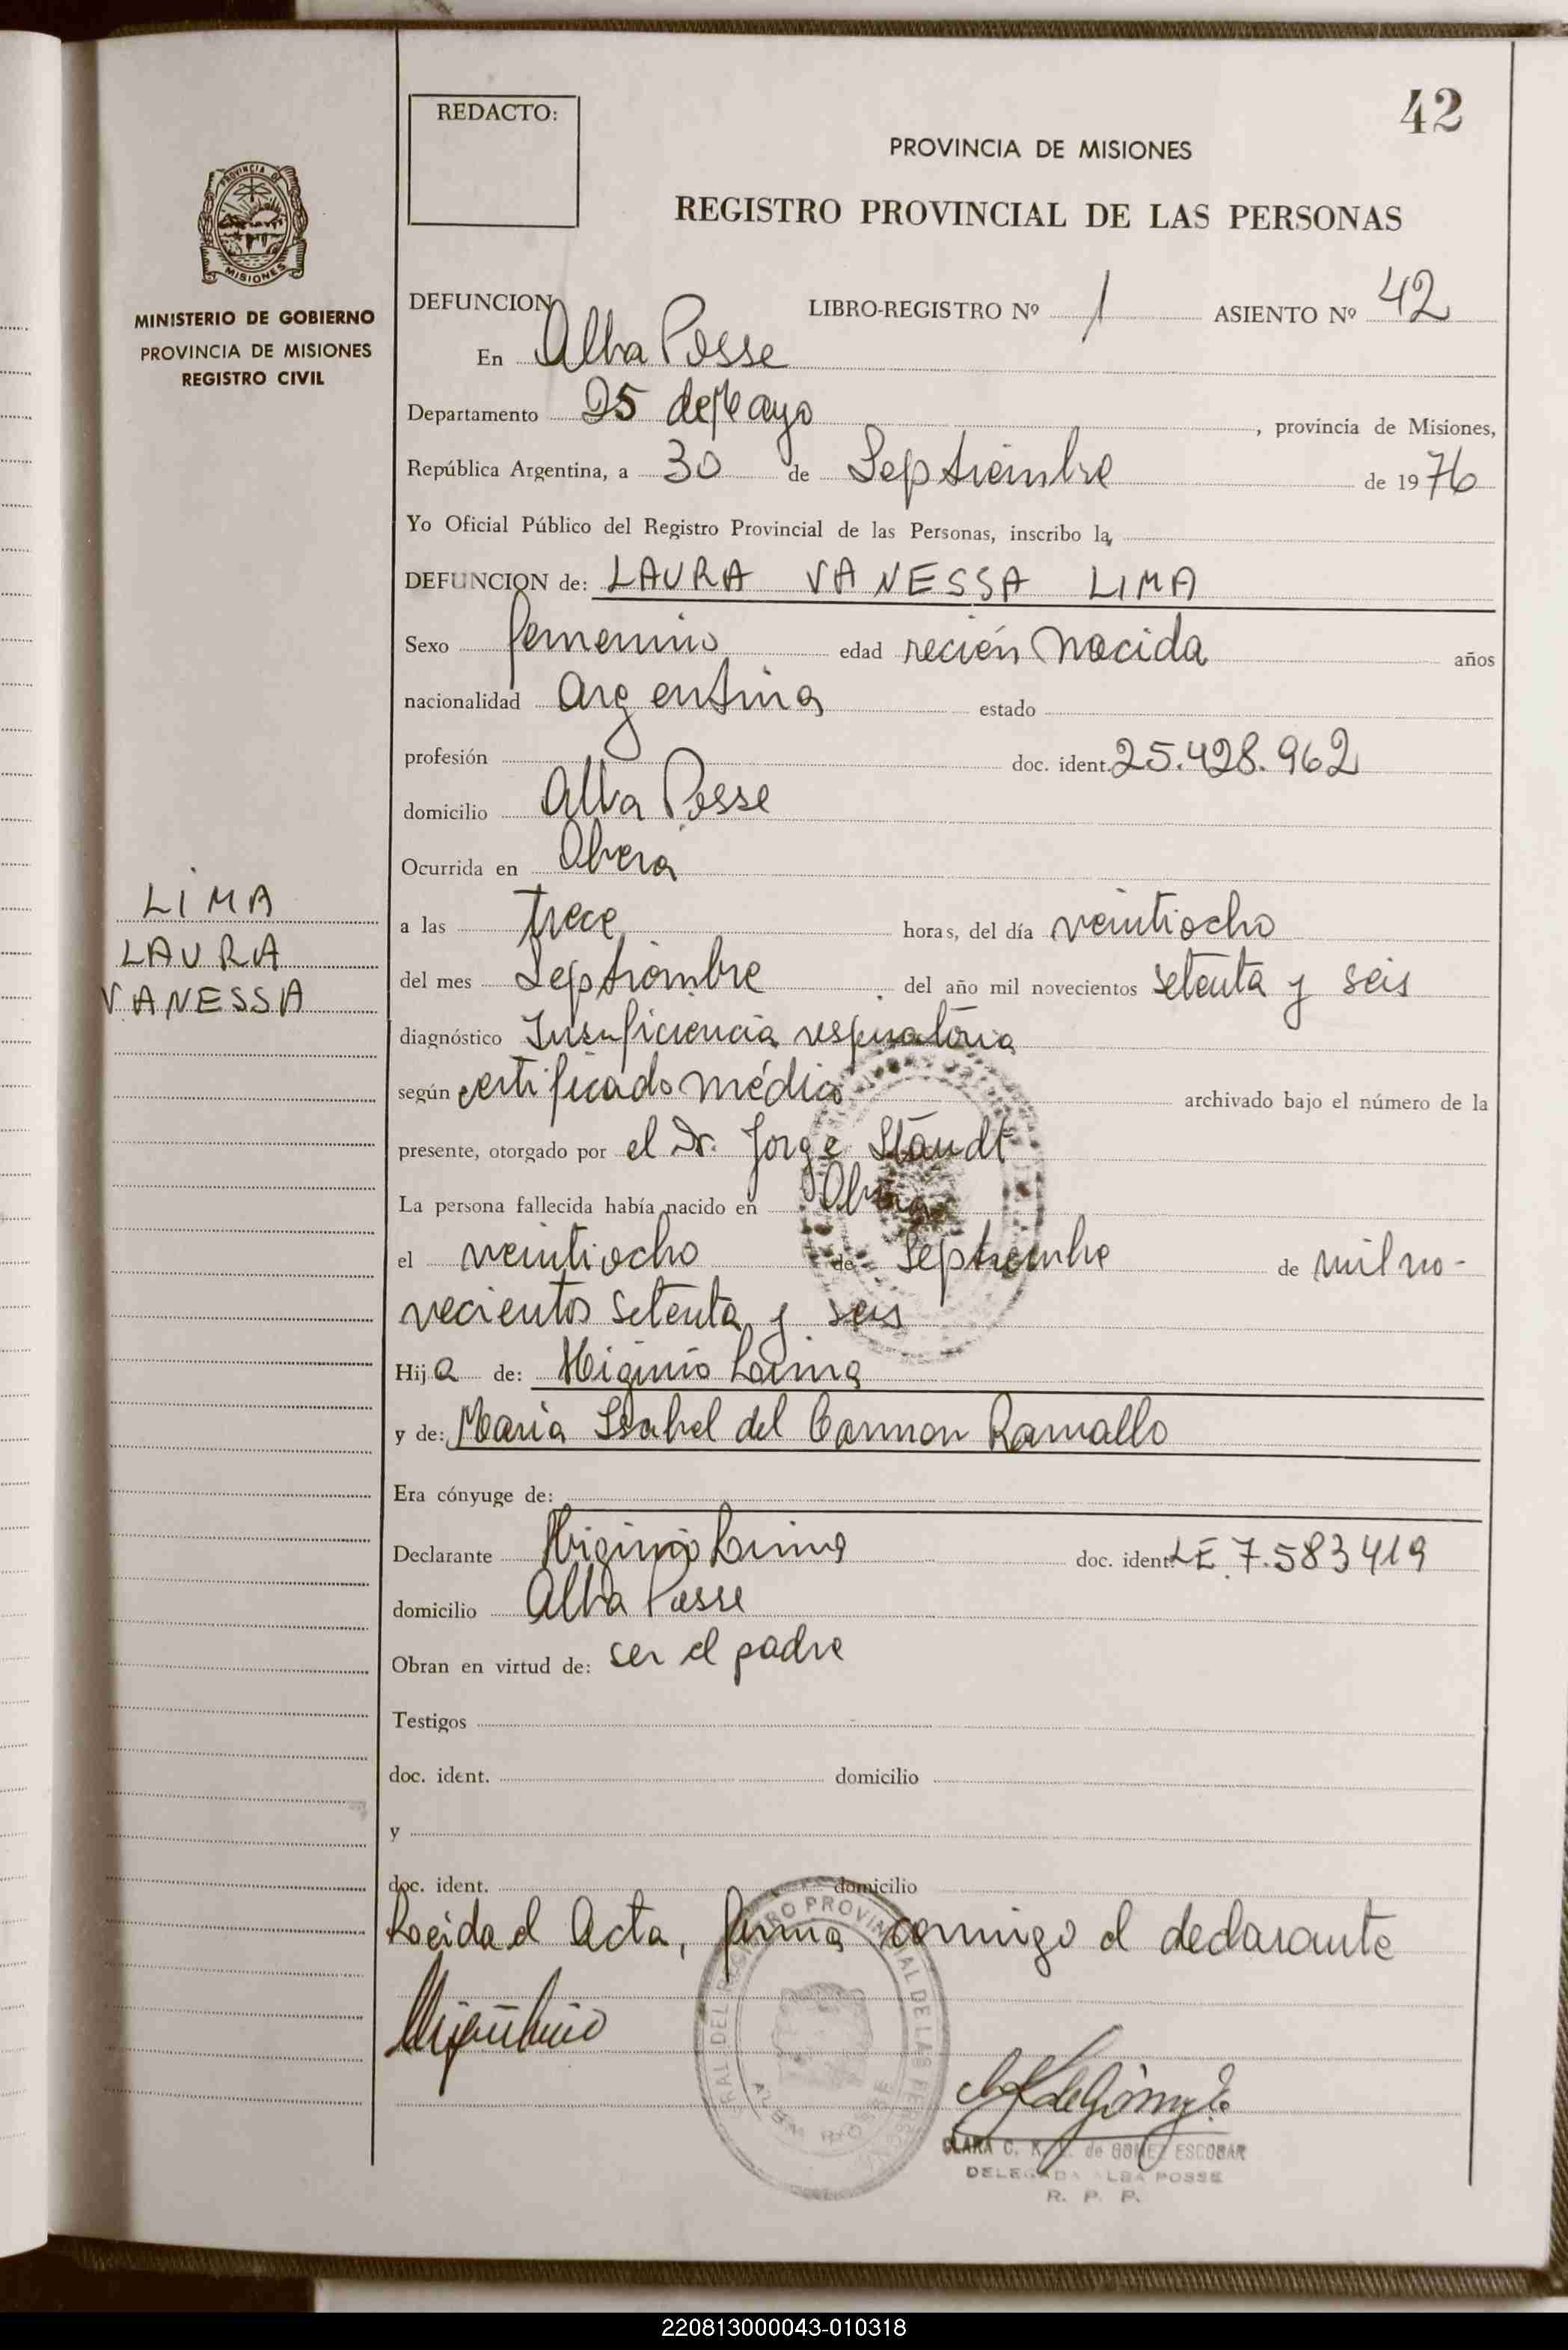 42
REDACTO:
PROVINCIA DE MISIONES
REGISTRO PROVINCIAL DE LAS PERSONAS
PROVINCIA DE
MISIONES
MINISTERIO DE GOBIERNO
PROVINCIA DE MISIONES
REGISTRO CIVIL
DEFUNCION LIBRO-REGISTRO Nº 1 ASIENTO Nº 42
En Alba Posse
Departamento 25 de Mayo, provincia de Misiones,
República Argentina, a 30 de Septiembre de 1976
Yo Oficial Público del Registro Provincial de las Personas, inscribo la
DEFUNCION de: LAURA VANESSA LIMA
Sexo femenino edad recién nacida años
nacionalidad Argentina estado
profesión doc. ident. 25.428.962
domicilio Alba Posse
Ocurrida en Oberá
LIMA
LAURA
VANESSA
a las trece horas, del día veintiocho
del mes Septiembre del año mil novecientos setenta y seis
diagnóstico Insuficiencia respiratória
según certificado médico archivado bajo el número de la
presente, otorgado por el Dr. Jorge Staudt
La persona fallecida había nacido en Oberá
el veintiocho de Septiembre de mil no-
vecientos setenta y seis
Hija de: Higinio Lima
y de: Maria Isabel del Carmen Ramallo
Era cónyuge de:
Declarante Higinio Lima doc. ident. LE 7.583419
domicilio Alba Posse
Obran en virtud de: ser el padre
Testigos
doc. ident. domicilio
y
doc. ident. domicilio
Leida el Acta, firma conmigo el declarante
CLARA C. K. de GOMEZ ESCOBAR
DELEGADA ALBA POSSE
R. P. P.
220813000043-010318